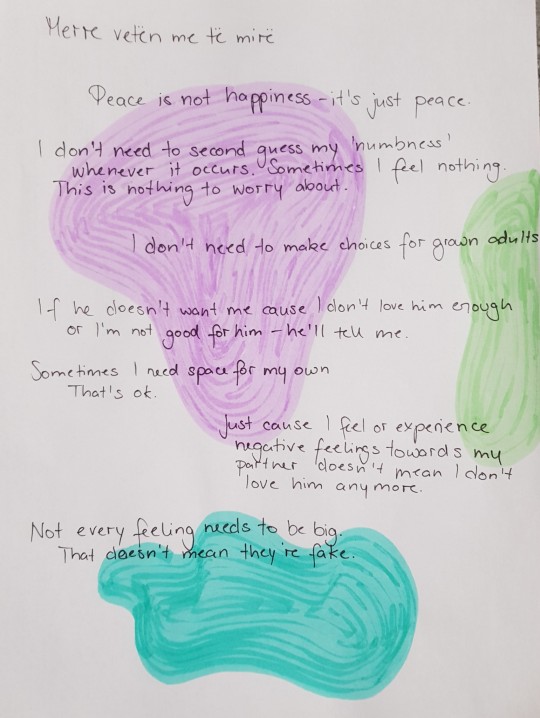 Merre vetën me të mirë
Peace is not happiness - it's just peace.
I don't need to second guess my 'numbness'
whenever it occurs. Sometimes I feel nothing.
This is nothing to worry about.
I don't need to make choices for grown adults
If he doesn't want me cause I don't love him enough
or I'm not good for him - he'll tell me.
Sometimes I need space for my own
That's ok.
Just cause I feel or experience
negative feelings towards my
partner doesn't mean I don't
love him anymore.
Not every feeling needs to be big.
That doesn't mean they're fake.